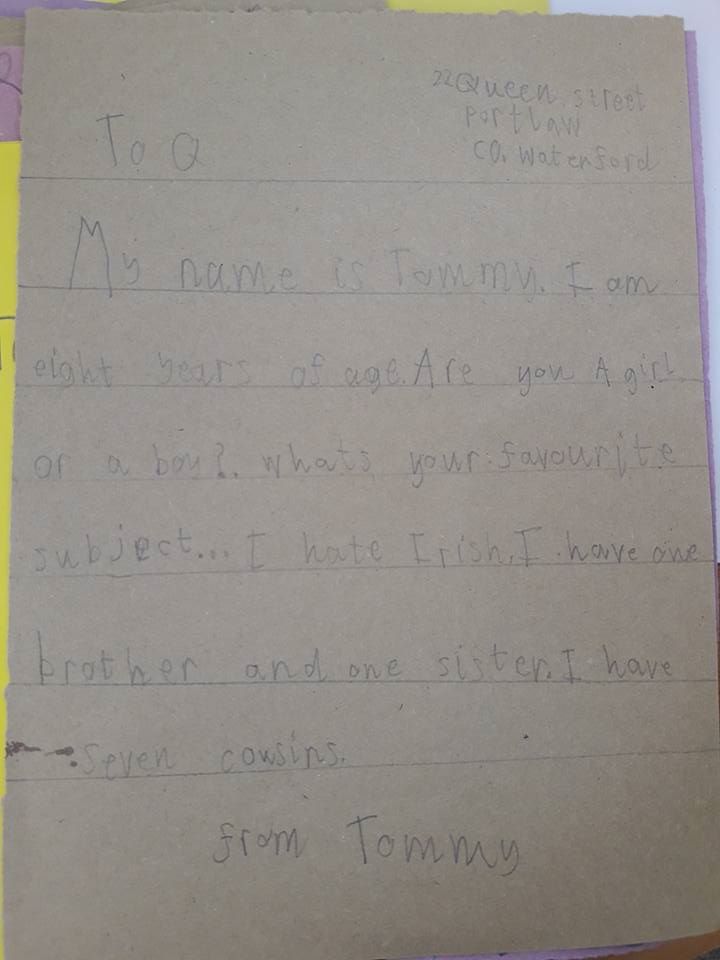 22 Queen street
Portlaw
CO. Waterford
To Q
My name is Tommy. I am
eight years of age. Are you A girl
or a boy?. whats your favourite
subject... I hate Irish. I have one
brother and one sister. I have
seven cousins.
from Tommy